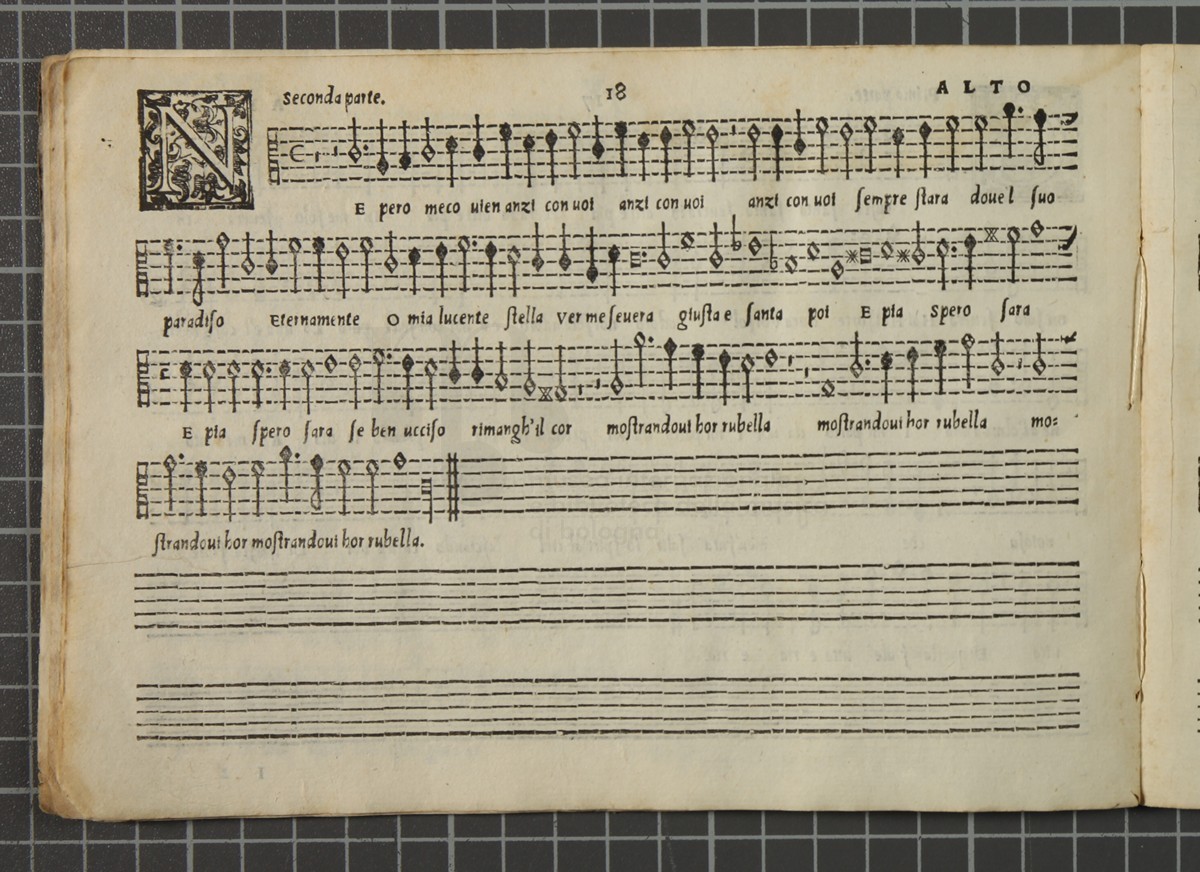 Seconda parte. 18 ALTO
NE pero meco uien anzi con uoi anzi con uoi anzi con uoi ſempre ſtara doue l ſuo
paradiſo Eternamente O mia lucente ſtella Ver me ſeuera giuſta e ſanta poi E pia Spero ſara
E pia ſpero ſara ſe ben ucciſo rimangh'il cor moſtrandoui hor rubella moſtrandoui hor rubella mo:
ſtrandoui hor moſtrandoui hor rubella.
di bologna